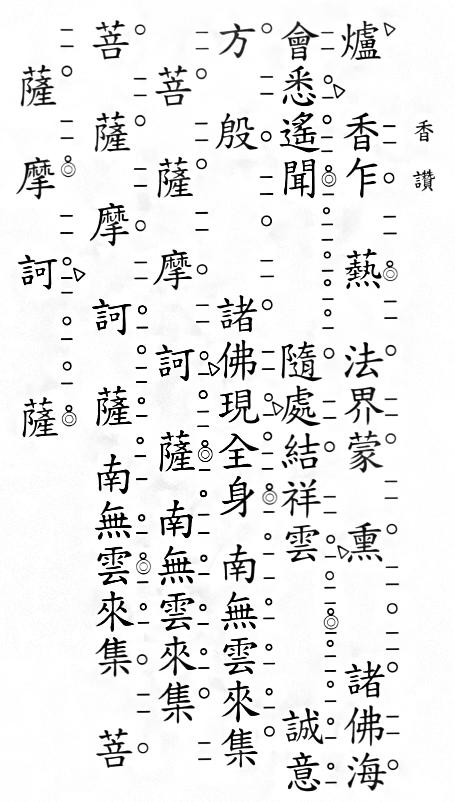 香讚
爐香乍爇法界蒙熏諸佛海
會悉遙聞隨處結祥雲誠意
方殷諸佛現全身南無雲來集
菩薩摩訶薩南無雲來集
菩薩摩訶薩南無雲來集菩
薩摩訶薩